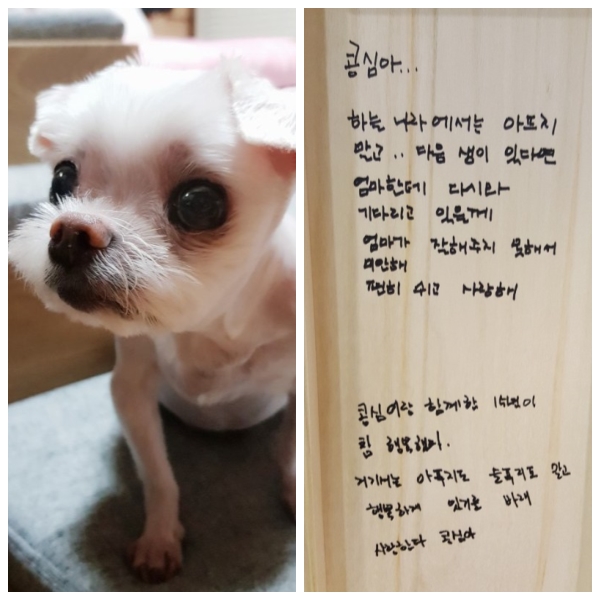 콩심아...
하늘 나라에서는 아프지
말고.. 다음 생이 있다면
엄마한테 다시와
기다리고 있을께
엄마가 잘해주지 못해서
미안해
편히 쉬고 사랑해
콩심이랑 함께한 15년이
참 행복했다.
거기서는 아푸지도 슬푸지도 말고
행복하게 있거를 바래
사랑한다 콩심아